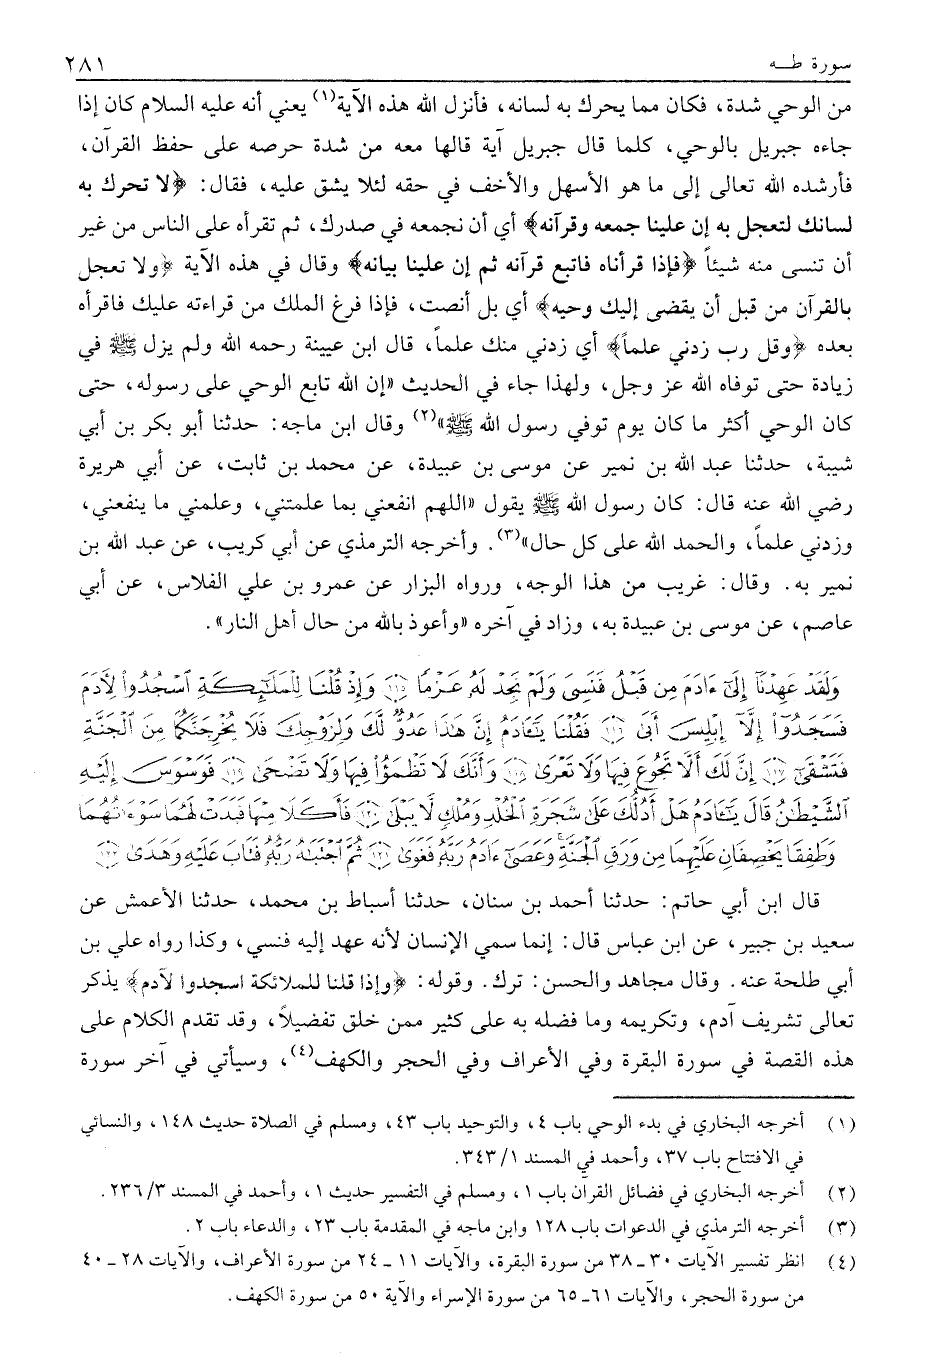 سورة طـه ٢٨١
من الوحي شدة، فكان مما يحرك به لسانه، فأنزل الله هذه الآية(١) يعني أنه عليه السلام كان إذا
جاءه جبريل بالوحي، كلما قال جبريل آية قالها معه من شدة حرصه على حفظ القرآن،
فأرشده الله تعالى إلى ما هو الأسهل والأخف في حقه لئلا يشق عليه، فقال: ﴿لا تحرك به
لسانك لتعجل به إن علينا جمعه وقرآنه﴾ أي أن نجمعه في صدرك، ثم تقرأه على الناس من غير
أن تنسى منه شيئاً ﴿فإذا قرأناه فاتبع قرآنه ثم إن علينا بيانه﴾ وقال في هذه الآية ﴿ولا تعجل
بالقرآن من قبل أن يقضى إليك وحيه﴾ أي بل أنصت، فإذا فرغ الملك من قراءته عليك فاقرأه
بعده ﴿وقل رب زدني علماً﴾ أي زدني منك علماً، قال ابن عيينة رحمه الله ولم يزل ﷺ في
زيادة حتى توفاه الله عز وجل، ولهذا جاء في الحديث «إن الله تابع الوحي على رسوله، حتى
كان الوحي أكثر ما كان يوم توفي رسول الله ﷺ»(٢) وقال ابن ماجه: حدثنا أبو بكر بن أبي
شيبة، حدثنا عبد الله بن نمير عن موسى بن عبيدة، عن محمد بن ثابت، عن أبي هريرة
رضي الله عنه قال: كان رسول الله ﷺ يقول «اللهم انفعني بما علمتني، وعلمني ما ينفعني،
وزدني علماً، والحمد الله على كل حال»(٣). وأخرجه الترمذي عن أبي كريب، عن عبد الله بن
نمير به. وقال: غريب من هذا الوجه، ورواه البزار عن عمرو بن علي الفلاس، عن أبي
عاصم، عن موسى بن عبيدة به، وزاد في آخره «وأعوذ بالله من حال أهل النار».
وَلَقَدْ عَهِدْنَآ إِلَىٰٓ ءَادَمَ مِن قَبْلُ فَنَسِىَ وَلَمْ نَجِدْ لَهُۥ عَزْمًا ﴿١١٥﴾ وَإِذْ قُلْنَا لِلْمَلَٰٓئِكَةِ ٱسْجُدُوا۟ لِأَدَمَ
فَسَجَدُوٓا۟ إِلَّآ إِبْلِيسَ أَبَىٰ ﴿١١٦﴾ فَقُلْنَا يَٰٓـَٔادَمُ إِنَّ هَٰذَا عَدُوٌّ لَّكَ وَلِزَوْجِكَ فَلَا يُخْرِجَنَّكُمَا مِنَ ٱلْجَنَّةِ
فَتَشْقَىٰٓ ﴿١١٧﴾ إِنَّ لَكَ أَلَّا تَجُوعَ فِيهَا وَلَا تَعْرَىٰ ﴿١١٨﴾ وَأَنَّكَ لَا تَظْمَؤُا۟ فِيهَا وَلَا تَضْحَىٰ ﴿١١٩﴾ فَوَسْوَسَ إِلَيْهِ
ٱلشَّيْطَٰنُ قَالَ يَٰٓـَٔادَمُ هَلْ أَدُلُّكَ عَلَىٰ شَجَرَةِ ٱلْخُلْدِ وَمُلْكٍ لَّا يَبْلَىٰ ﴿١٢٠﴾ فَأَكَلَا مِنْهَا فَبَدَتْ لَهُمَا سَوْءَٰتُهُمَا
وَطَفِقَا يَخْصِفَانِ عَلَيْهِمَا مِن وَرَقِ ٱلْجَنَّةِ ۚ وَعَصَىٰٓ ءَادَمُ رَبَّهُۥ فَغَوَىٰ ﴿١٢١﴾ ثُمَّ ٱجْتَبَٰهُ رَبُّهُۥ فَتَابَ عَلَيْهِ وَهَدَىٰ ﴿١٢٢﴾
قال ابن أبي حاتم: حدثنا أحمد بن سنان، حدثنا أسباط بن محمد، حدثنا الأعمش عن
سعيد بن جبير، عن ابن عباس قال: إنما سمي الإنسان لأنه عهد إليه فنسي، وكذا رواه علي بن
أبي طلحة عنه. وقال مجاهد والحسن: ترك. وقوله: ﴿وإذا قلنا للملائكة اسجدوا لآدم﴾ يذكر
تعالى تشريف آدم، وتكريمه وما فضله به على كثير ممن خلق تفضيلاً، وقد تقدم الكلام على
هذه القصة في سورة البقرة وفي الأعراف وفي الحجر والكهف(٤)، وسيأتي في آخر سورة
(١) أخرجه البخاري في بدء الوحي باب ٤، والتوحيد باب ٤٣، ومسلم في الصلاة حديث ١٤٨، والنسائي
في الافتتاح باب ٣٧، وأحمد في المسند ١/ ٣٤٣.
(٢) أخرجه البخاري في فضائل القرآن باب ١، ومسلم في التفسير حديث ١، وأحمد في المسند ٣/ ٢٣٦.
(٣) أخرجه الترمذي في الدعوات باب ١٢٨ وابن ماجه في المقدمة باب ٢٣، والدعاء باب ٢.
(٤) انظر تفسير الآيات ٣٠ ـ ٣٨ من سورة البقرة، والآيات ١١ ـ ٢٤ من سورة الأعراف، والآيات ٢٨ ـ ٤٠
من سورة الحجر، والآيات ٦١ ـ ٦٥ من سورة الإسراء والآية ٥٠ من سورة الكهف.